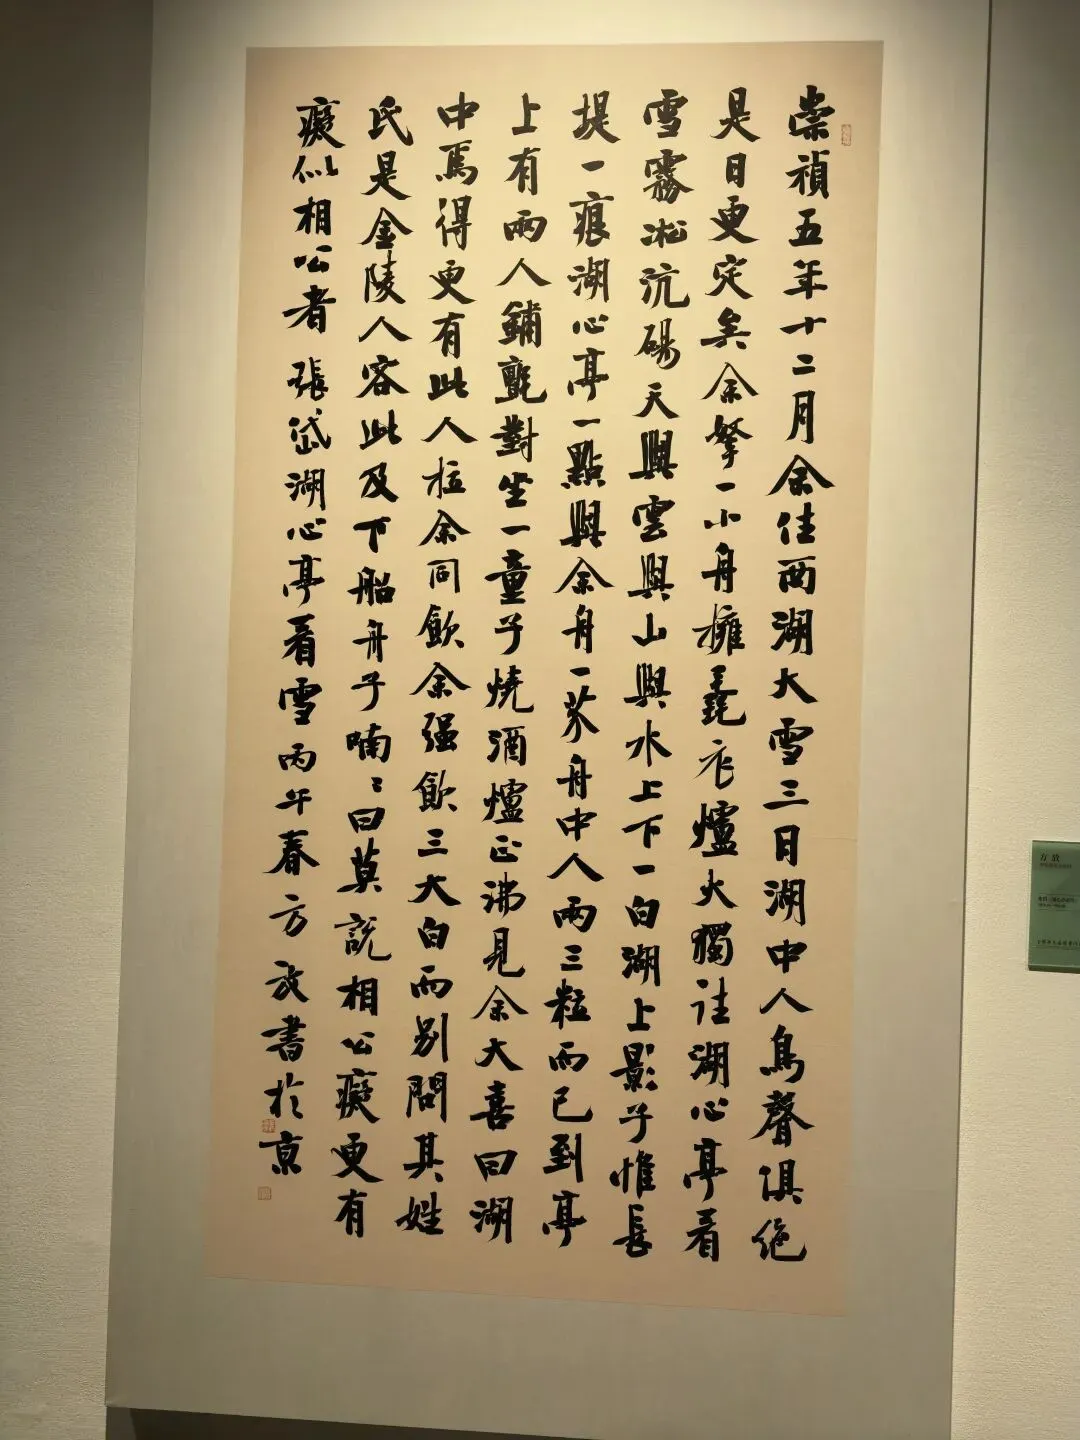 崇禎五年十二月余住西湖大雪三日湖中人鳥聲俱絕
是日更定矣余拏一小舟擁毳衣爐火獨往湖心亭看
雪霧凇沆碭天與雲與山與水上下一白湖上影子惟長
堤一痕湖心亭一點與余舟一芥舟中人兩三粒而已到亭
上有兩人鋪氈對坐一童子燒酒爐正沸見余大喜曰湖
中焉得更有此人拉余同飲余强飲三大白而別問其姓
氏是金陵人客此及下船舟子喃〻曰莫說相公癡更有
癡似相公者 張岱湖心亭看雪丙午春方放書於京
方放